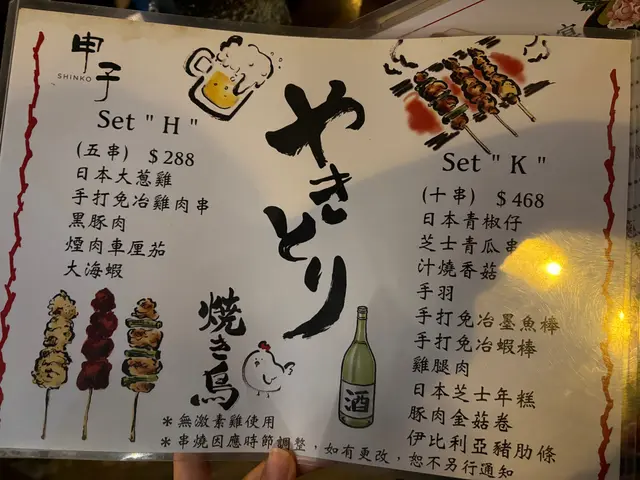 申子
SHINKO
Set " H "
(五串) $288
日本大蔥雞
手打免冶雞肉串
黑豚肉
煙肉車厘茄
大海蝦
やきとり
Set " K "
(十串) $468
日本青椒仔
芝士青瓜串
汁燒香菇
手羽
手打免冶墨魚棒
手打免冶蝦棒
雞腿肉
日本芝士年糕
豚肉金菇卷
伊比利亞豬肋條
焼き鳥
酒
*無激素雞使用
*串燒因應時節調整，如有更改，恕不另行通知